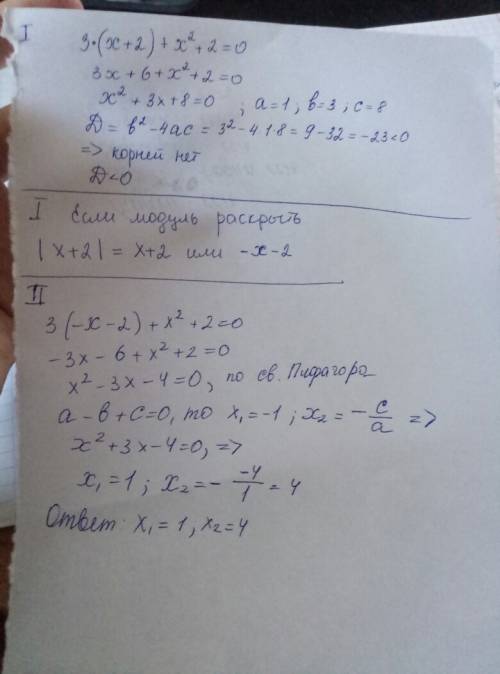 I
3·(x+2)+x²+2=0
3x+6+x²+2=0
x²+3x+8=0 ; a=1, b=3; c=8
D = b²-4ac = 3²-4·1·8 = 9-32 = -23<0
=> корней нет
D<0
I Если модуль раскрыть
|x+2| = x+2 или -x-2
II
3(-x-2)+x²+2=0
-3x-6+x²+2=0
x²-3x-4=0, по св. Пифагора
a-b+c=0, то x₁=-1; x₂=-c/a =>
x²+3x-4=0, =>
x₁=1; x₂=- -4/1 = 4
Ответ: x₁=1, x₂=4